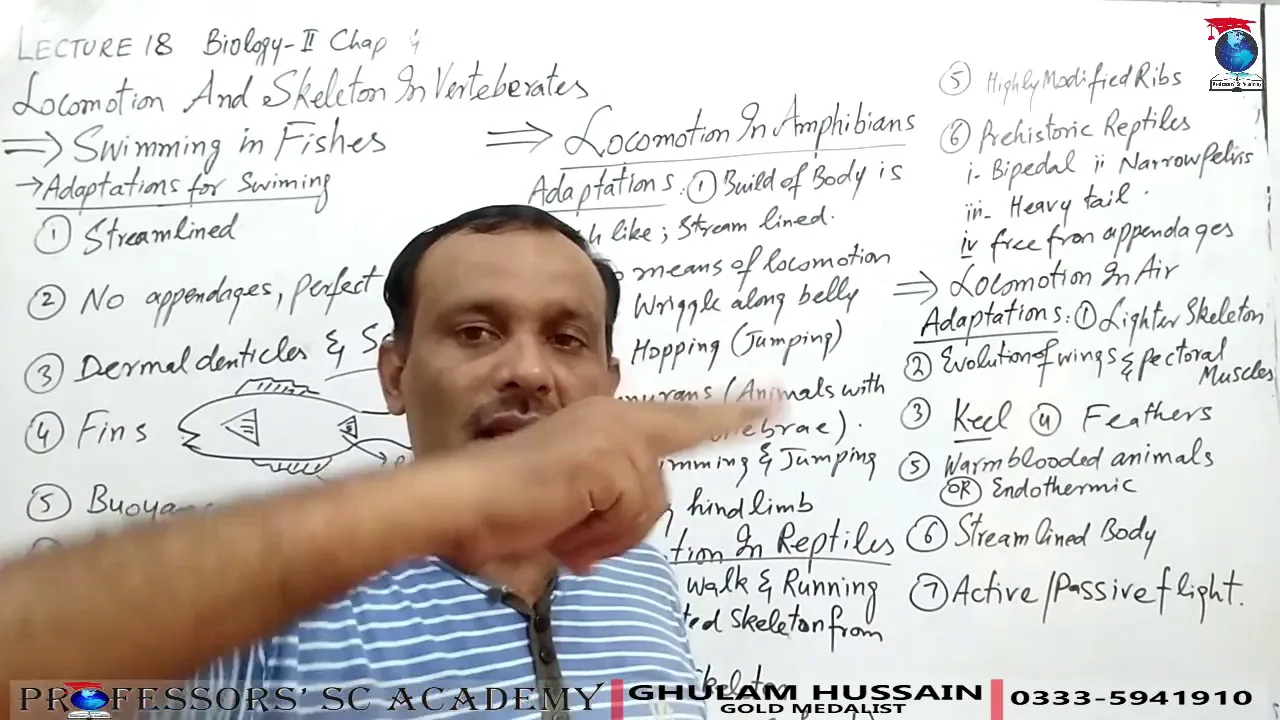 LECTURE 18 Biology-II Chap
Locomotion And Skeleton In Verteberates
⇒ Swimming in Fishes
→ Adaptations for Swiming
① Streamlined
② No appendages, perfect
③ Dermal denticles &
④ Fins
⑤
⇒ Locomotion In Amphibians
Adaptations: ① Build of Body is
like; Stream lined.
means of locomotion
Wriggle along belly
Hopping (Jumping)
(Animals with
& Jumping
hindlimb
In Reptiles
Walk & Running
Skeleton from
Skeleton
⑤ Highly Modified Ribs
⑥ Prehistoric Reptiles
i- Bipedal ii Narrow Pelvis
iii- Heavy tail.
iv free fron appendages
⇒ Locomotion In Air
Adaptations: ① Lighter Skeleton
② Evolution of wings & pectoral
Muscles
③ Keel ④ Feathers
⑤ Warmblooded animals
OR Endothermic
⑥ Streamlined Body
⑦ Active/Passive flight.
PROFESSORS' SC ACADEMY
GHULAM HUSSAIN
GOLD MEDALIST
0333-5941910